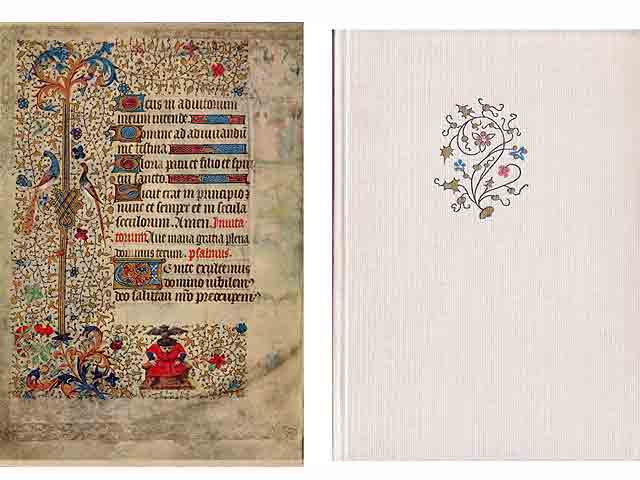 Deus in adiutorium
meum intende
Domine ad adiuuandū
me festina
Gloria patri et filio et spiri
tui sancto
Sicut erat in principio
nunc et semper et in secula
seculorum Amen Inuita
torium Aue maria gratia plena
dominus tecum psalmus
Uenite exultemus
domino iubilem9
deo salutari nr̄o preocupem9